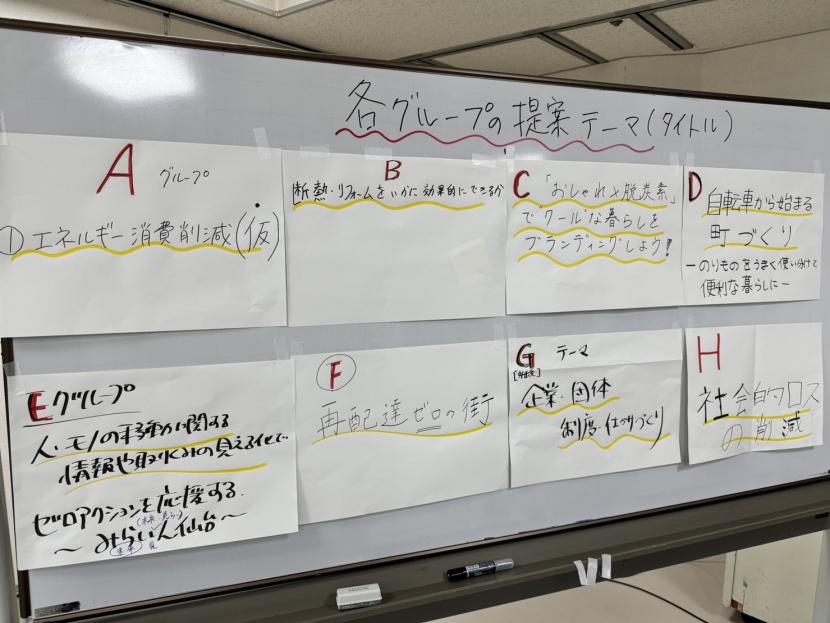 各グループの提案テーマ(タイトル)
A グループ
①エネルギー消費削減(仮)
B
断熱・リフォームをいかに効果的にできるか
C 「おしゃれ×脱炭素」
で"クール"な暮らしを
ブランディングしよう!
D 自転車から始まる
町づくり
ーのりものをうまく使い分けて
便利な暮らしにー
Eグループ
人・モノの移動に関する
情報や取り組みの見える化で
ゼロアクションを応援する
～みらい人仙台～
F
再配達ゼロの街
G テーマ
企業・団体
制度・仕組みづくり
H
社会的ロス
の削減